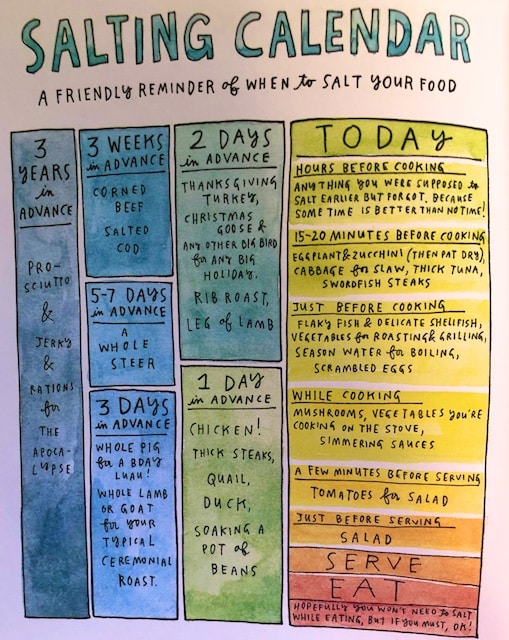 SALTING CALENDAR
A FRIENDLY REMINDER of WHEN to SALT YOUR FOOD
3
YEARS
in
ADVANCE
PRO-
SCIUTTO
&
JERKY
&
RATIONS
for
THE
APOCA-
LYPSE
3 WEEKS
in ADVANCE
CORNED
BEEF
SALTED
COD
5-7 DAYS
in ADVANCE
A
WHOLE
STEER
3 DAYS
in ADVANCE
WHOLE PIG
for A BDAY
LUAU!
WHOLE LAMB
OR GOAT
for YOUR
TYPICAL
CEREMONIAL
ROAST.
2 DAYS
in ADVANCE
THANKSGIVING
TURKEY,
CHRISTMAS
GOOSE &
ANY OTHER BIG BIRD
for ANY BIG
HOLIDAY.
RIB ROAST,
LEG of LAMB
1 DAY
in ADVANCE
CHICKEN!
THICK STEAKS,
QUAIL,
DUCK,
SOAKING A
POT of
BEANS
TODAY
HOURS BEFORE COOKING
ANYTHING YOU WERE SUPPOSED to
SALT EARLIER BUT FORGOT. BECAUSE
SOME TIME IS BETTER THAN NO TIME!
15-20 MINUTES BEFORE COOKING
EGGPLANT & ZUCCHINI (THEN PAT DRY),
CABBAGE for SLAW, THICK TUNA,
SWORDFISH STEAKS
JUST BEFORE COOKING
FLAKY FISH & DELICATE SHELLFISH,
VEGETABLES for ROASTING & GRILLING,
SEASON WATER for BOILING,
SCRAMBLED EGGS
WHILE COOKING
MUSHROOMS, VEGETABLES YOU'RE
COOKING ON THE STOVE,
SIMMERING SAUCES
A FEW MINUTES BEFORE SERVING
TOMATOES for SALAD
JUST BEFORE SERVING
SALAD
SERVE
EAT
HOPEFULLY YOU WON'T NEED to SALT
WHILE EATING, BUT IF YOU MUST, OK!